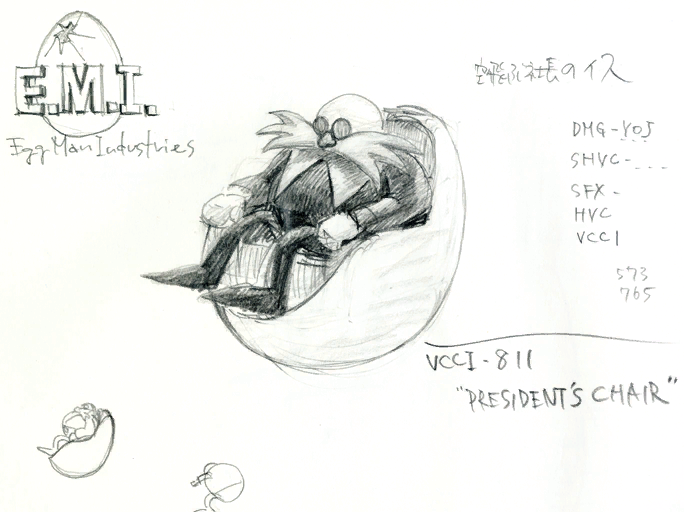 E.M.I.
Egg Man Industries
社長のイス
DMG-YOJ
SHVC-...
SFX-
HVC
VCCI
573
765
VCCI-811
"PRESIDENT'S CHAIR"